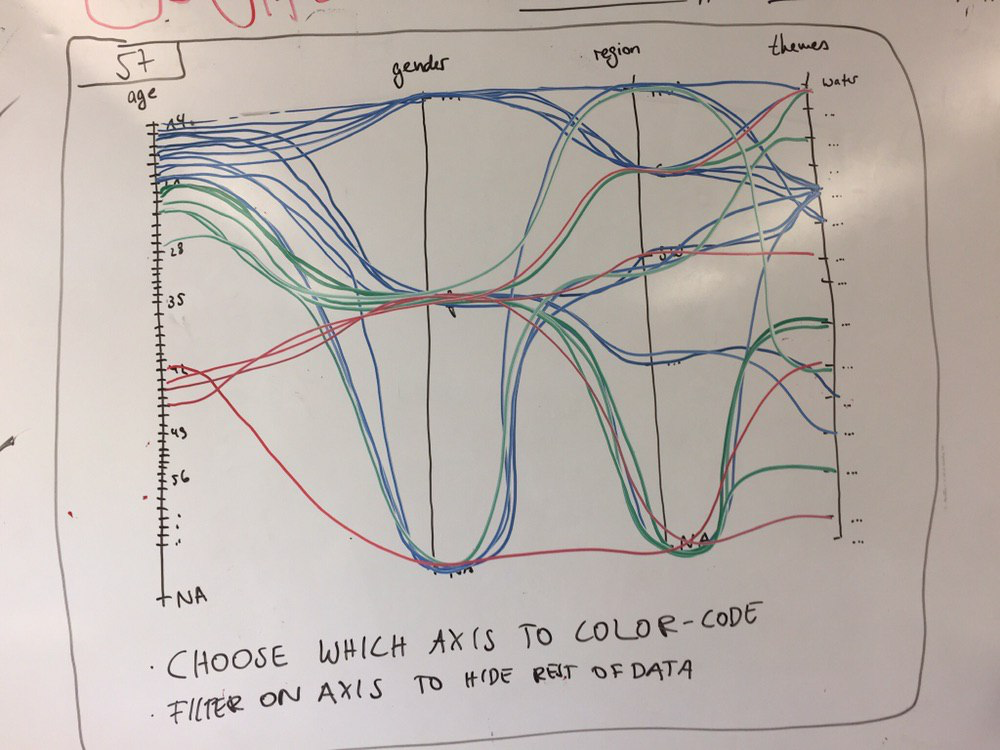 57
age
gender
region
themes
water
14
28
35
42
49
56
NA
f
NA
NA
· CHOOSE WHICH AXIS TO COLOR-CODE
· FILTER ON AXIS TO HIDE REST OF DATA